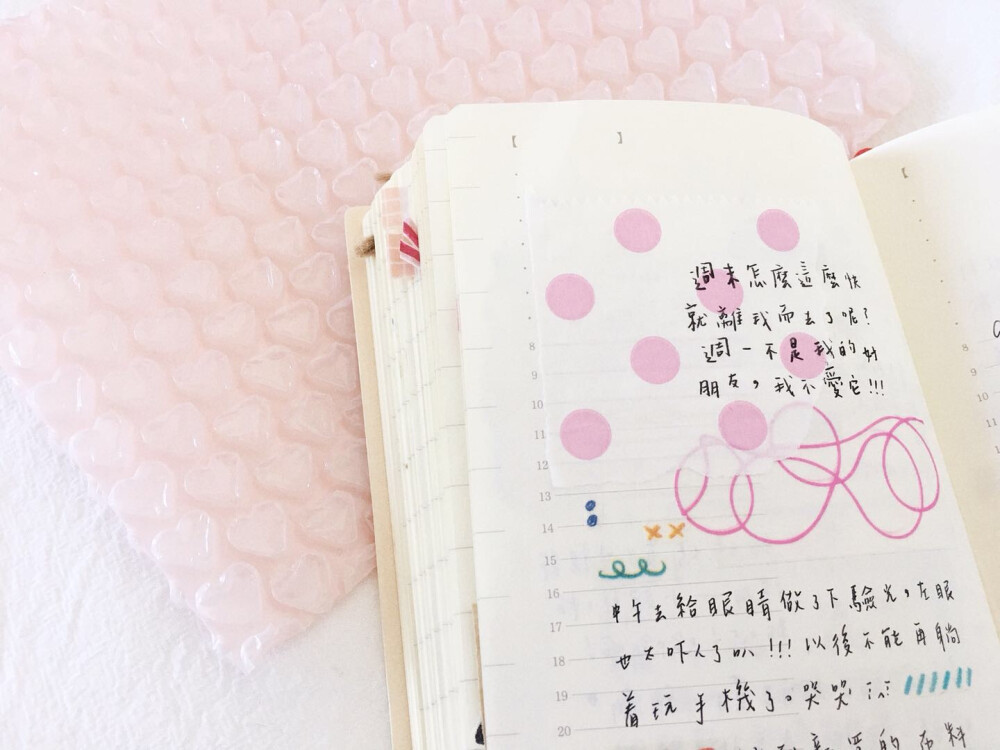 週末怎麼這麼快
就離我而去了呢?
週一不是我的好
朋友,我不愛它!!!
中午去給眼睛做了下驗光,左眼
也太吓人了叭!!!以後不能再躺
着玩手機了。哭哭
8
9
10
11
12
13
14
15
16
17
18
19
20
8
9
10
11